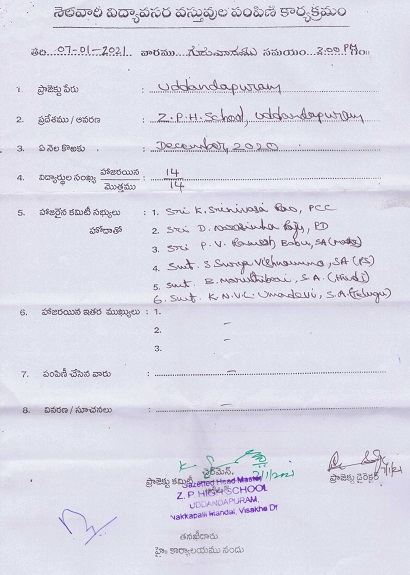 నెలవారీ విద్యావసర వస్తువుల పంపిణీ కార్యక్రమం
తేది 07-01-2021 వారము గురువారము సమయం 2.00 PM గం॥
1. ప్రాజెక్టు పేరు : Uddandapuram
2. ప్రదేశము / ఆవరణ : Z.P.H. School, Uddandapuram
3. ఏ నెల కొఱకు : December, 2020
4. విద్యార్థుల సంఖ్య హాజరయిన : 14
మొత్తము 14
5. హాజరైన కమిటీ సభ్యులు : 1. Sri K. Srinivasa Rao, PCC
హోదాతో 2. Sri D. Narasimha Raju, PD
3. Sri P. V. Ramesh Babu, SA (Maths)
4. Smt. S. Surya Vishnamma, SA (PS)
5. Smt. B. Maruthibai, S.A. (Hindi)
6. Smt. K.N.V.L. Umadevi, S.A. (Telugu)
6. హాజరయిన ఇతర ముఖ్యులు : 1.
2. –
3. –
7. పంపిణీ చేసిన వారు : –
8. వివరణ / సూచనలు : –
7/1/2021
7/1/21
ప్రాజెక్టు కమిటీ ఛైర్మన్, ప్రాజెక్టు డైరెక్టర్
Gazetted Head Master
Z. P. HIGH SCHOOL
UDDANDAPURAM,
Nakkapalli Mandal, Visakha Dt
తనఖీదారు
హై కార్యాలయము నందు